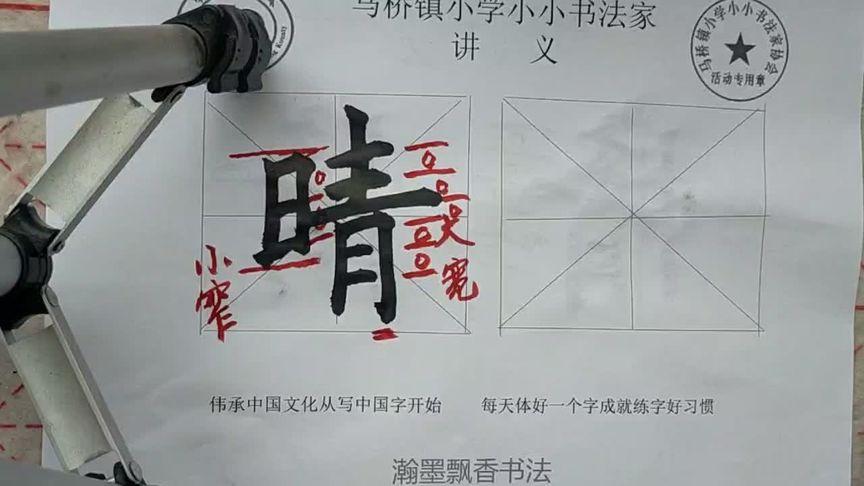 马桥镇小学小小书法家
讲 义
马桥镇小学小小书法家协会
活动专用章
晴
小窄
大宽
伟承中国文化从写中国字开始 每天体好一个字成就练字好习惯
瀚墨飘香书法